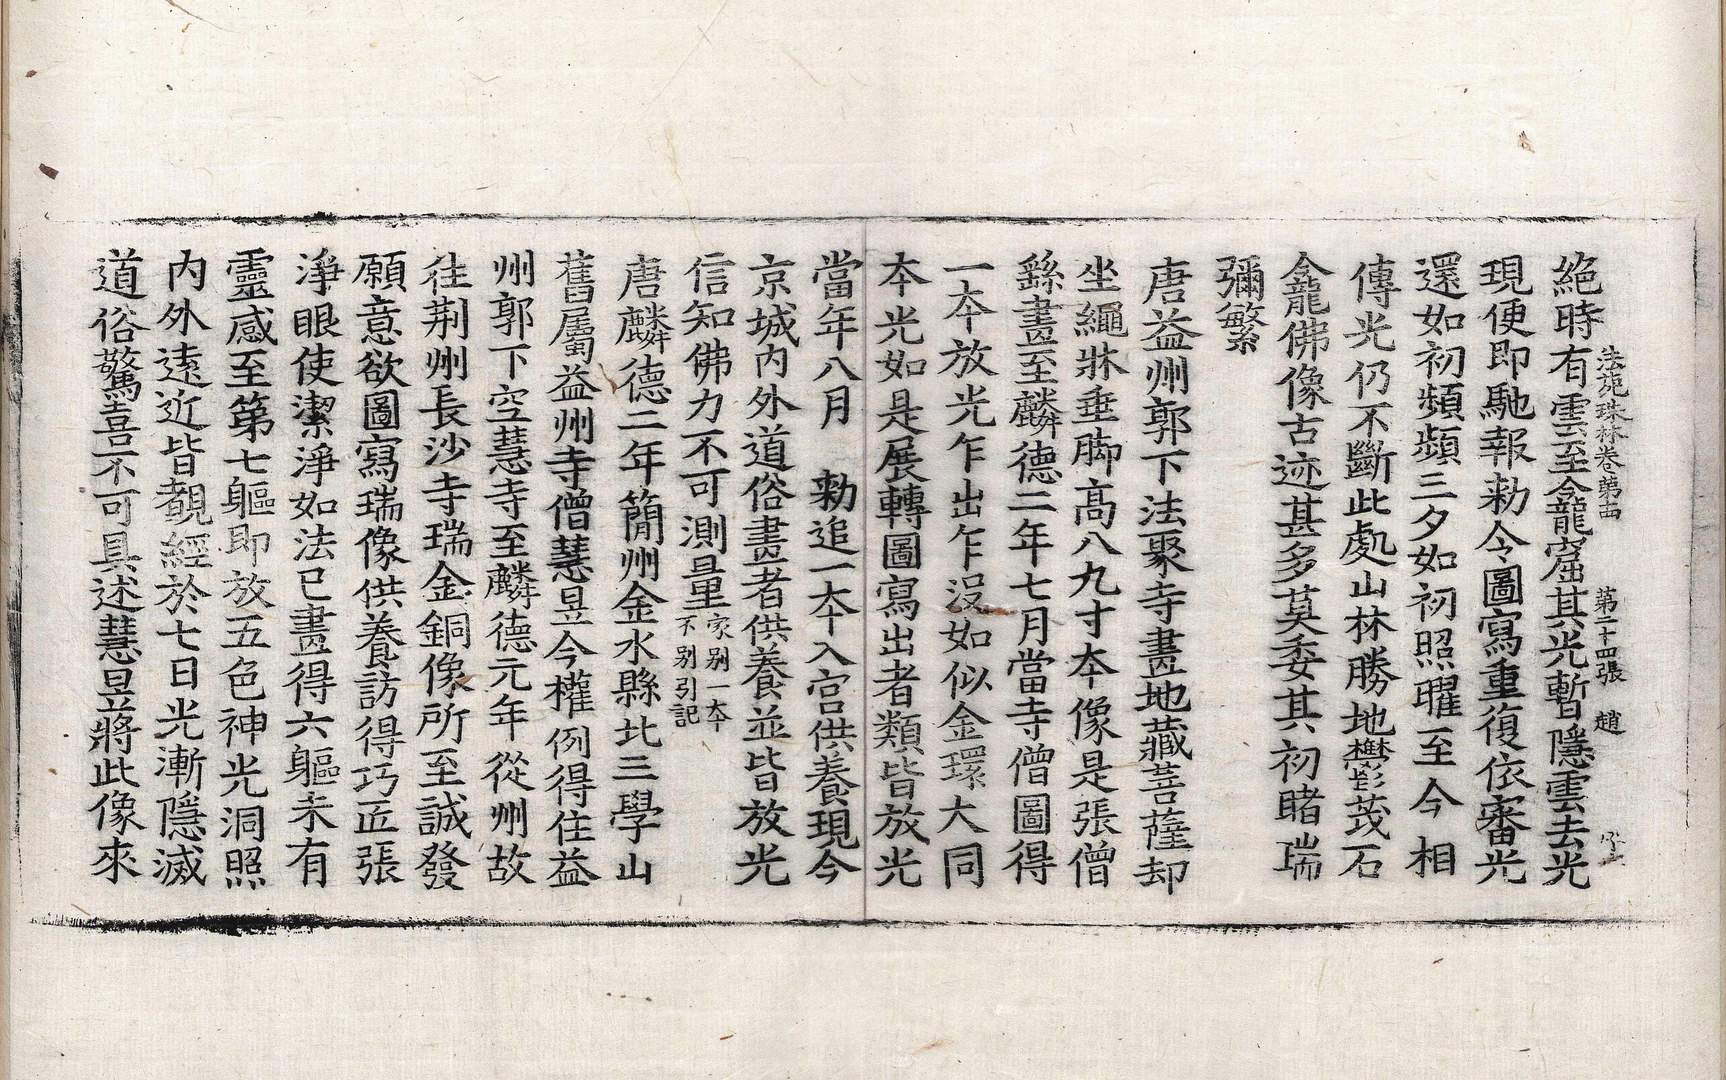 法苑珠林卷第十四 第二十四張 趙
絕時有雲至龕窟其光暫隱雲去光
現便即馳報勅令圖寫重復依審光
還如初頻頻三夕如初照曜至今相
傳光仍不斷此處山林勝地欝茂石
龕佛像古迹甚多莫委其初睹瑞
彌繁
唐益州郭下法聚寺畫地藏菩薩却
坐繩牀垂脚高八九寸本像是張僧
繇畫至麟德二年七月當寺僧圖得
一本放光乍出乍沒如似金環大同
本光如是展轉圖寫出者類皆放光
當年八月 勅追一本入宮供養現今
京城內外道俗畫者供養並皆放光
信知佛力不可測量家別一本不別引記
唐麟德二年簡州金水縣北三學山
舊屬益州寺僧慧昱今權例得住益
州郭下空慧寺至麟德元年從州故
往荊州長沙寺瑞金銅像所至誠發
願意欲圖寫瑞像供養訪得巧匠張
淨眼使潔淨如法已畫得六軀未有
靈感至第七軀即放五色神光洞照
內外遠近皆覩經於七日光漸隱滅
道俗驚喜不可具述慧昱將此像來